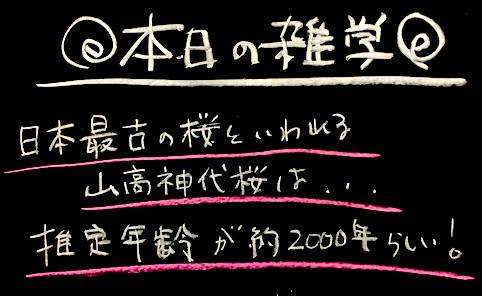 本日の雑学
日本最古の桜といわれる
山高神代桜は...
推定年齢が約2000年らしい!